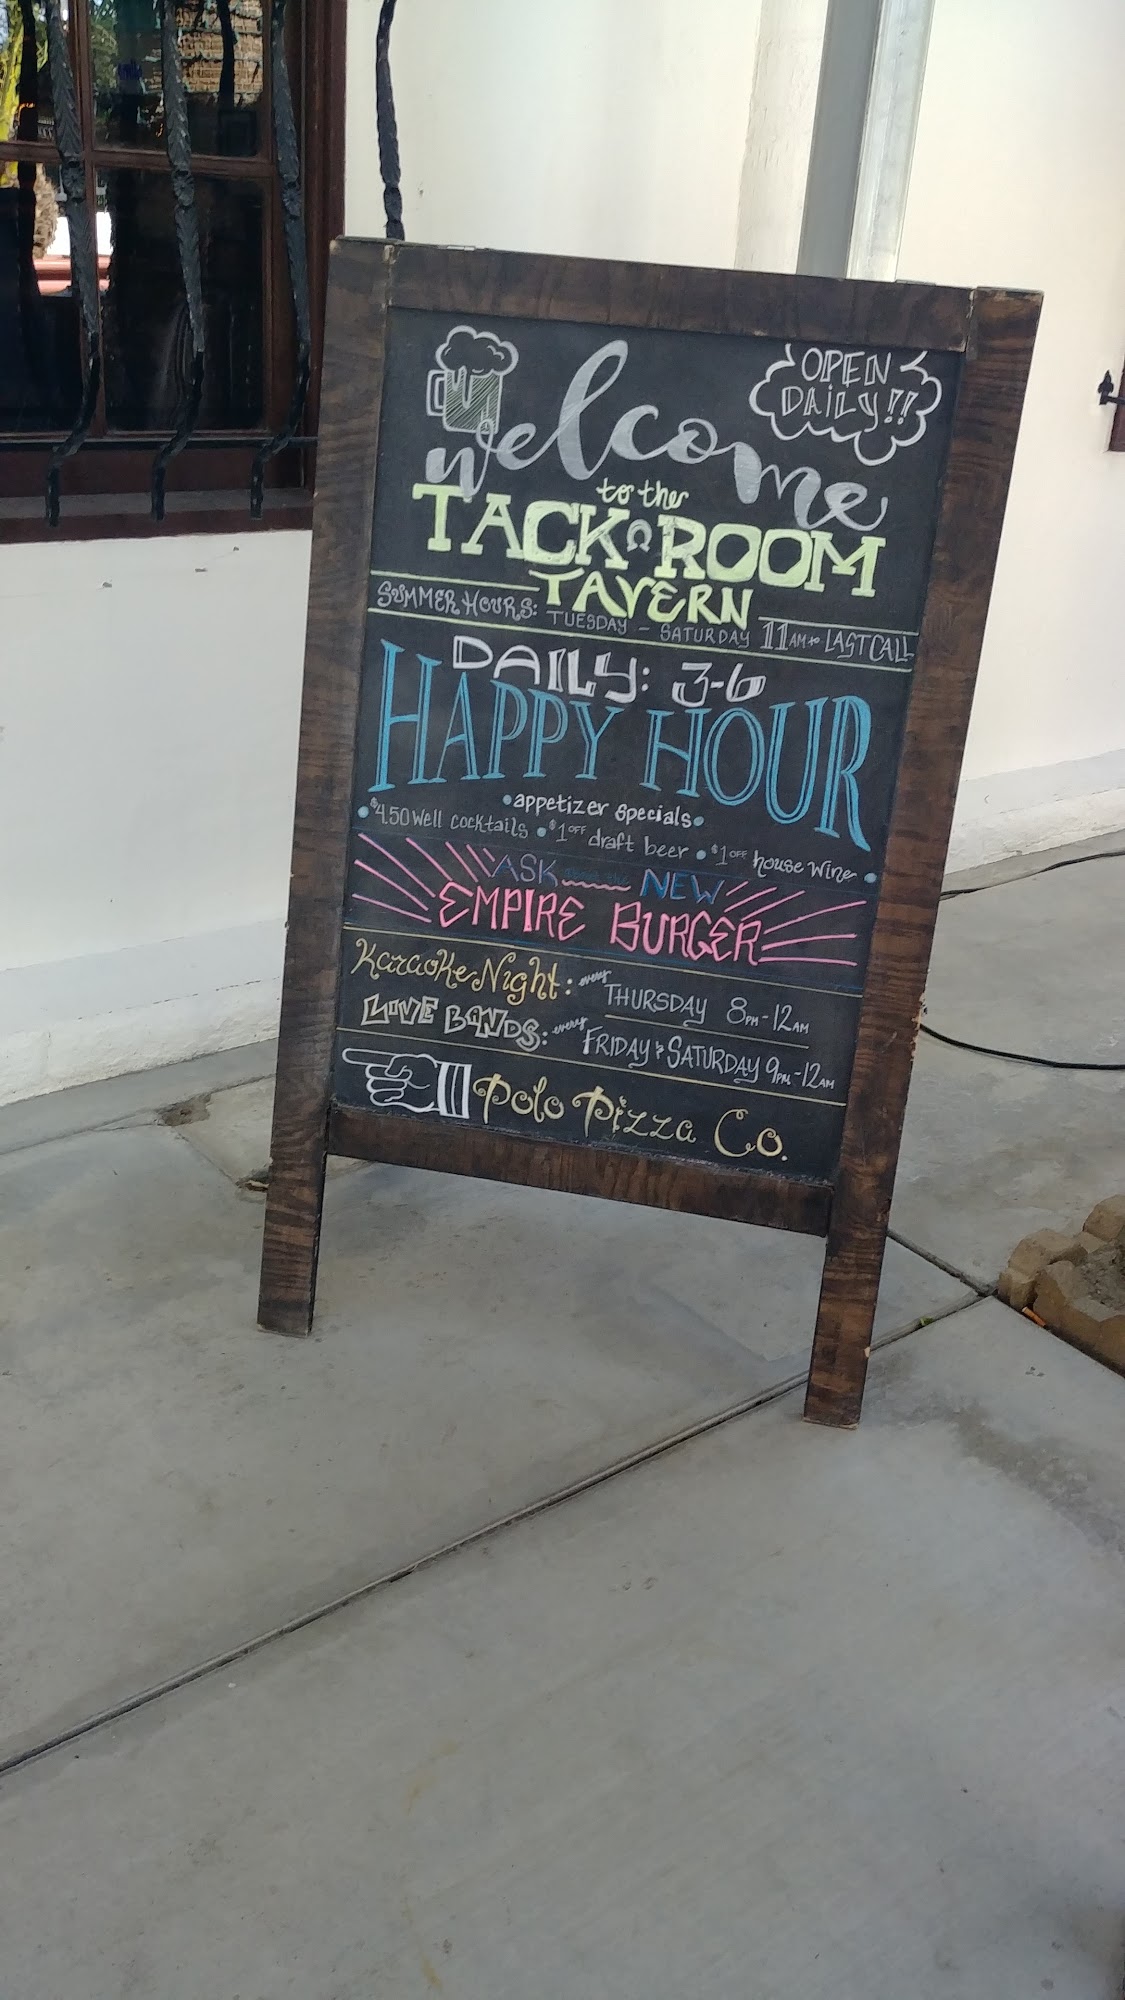 OPEN
DAILY!!
welcome
to the
TACK ROOM
TAVERN
SUMMER HOURS: TUESDAY - SATURDAY 11AM to LAST CALL
DAILY: 3-6
HAPPY HOUR
• appetizer specials •
• $4.50 well cocktails • $1 OFF draft beer • $1 OFF house wine •
ASK about the NEW
EMPIRE BURGER
Karaoke Night: every THURSDAY 8PM-12AM
LIVE BANDS: every FRIDAY & SATURDAY 9PM-12AM
Polo Pizza Co.